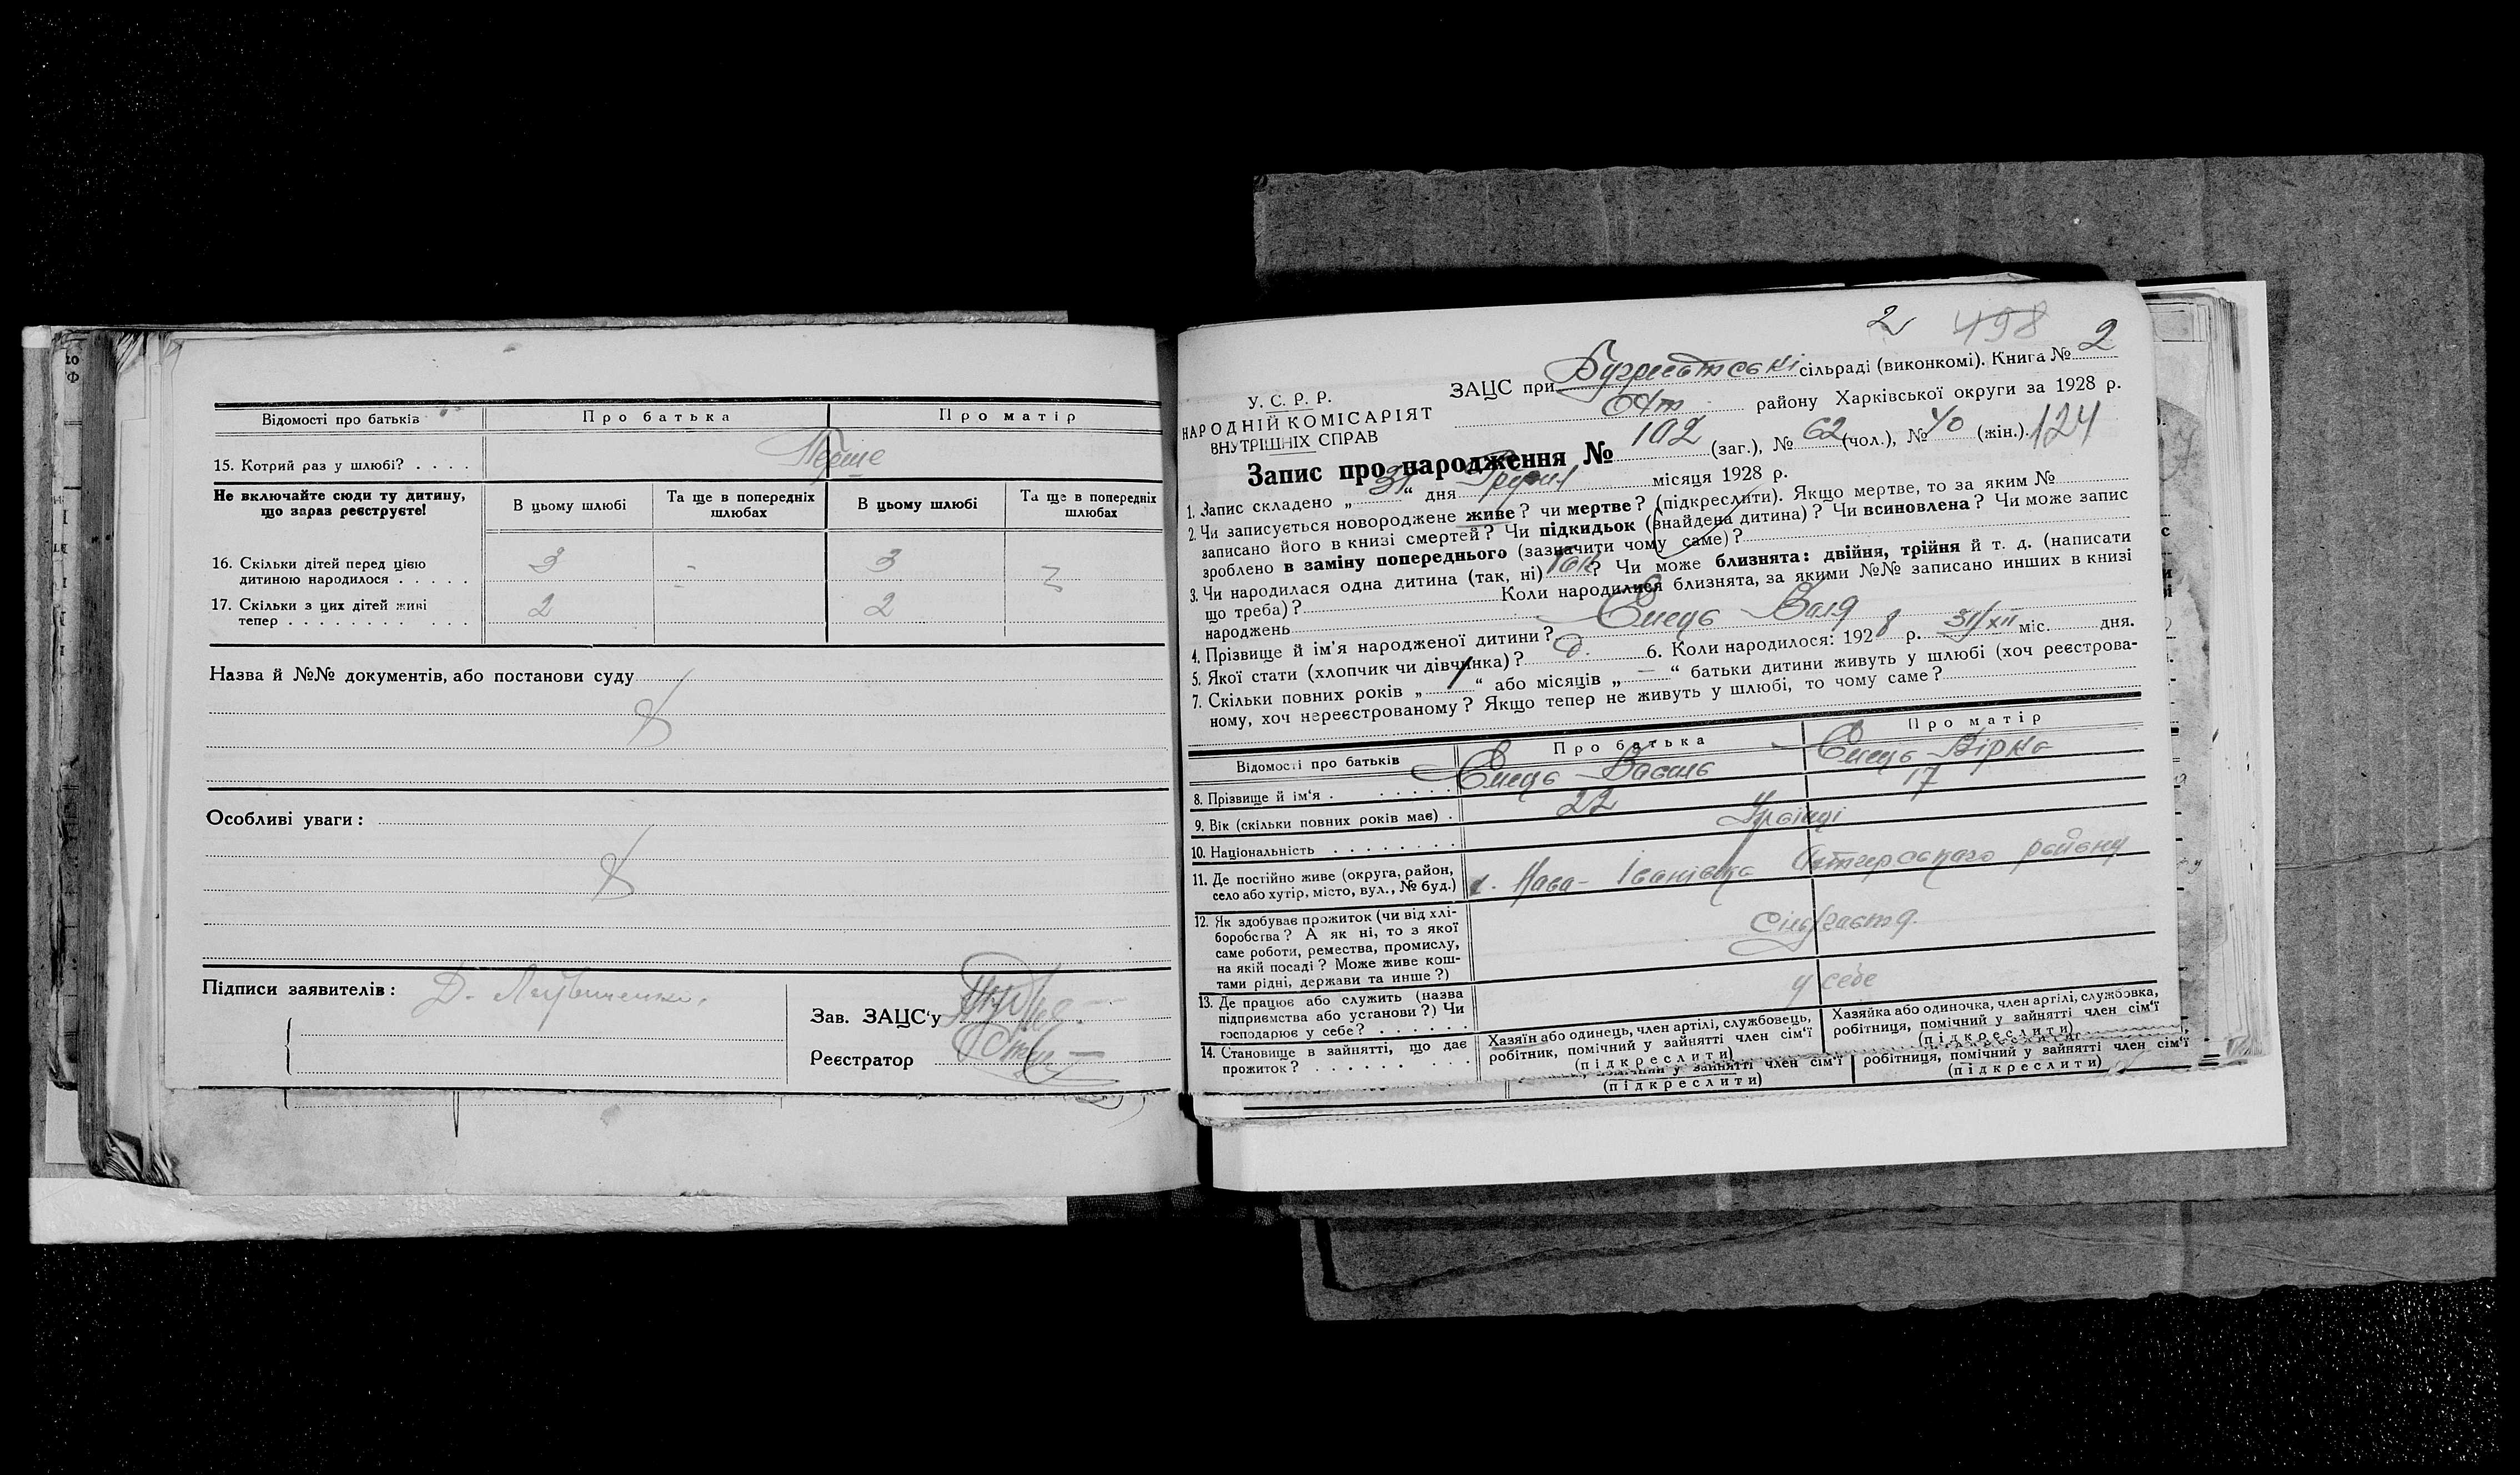 Відомості про батьків
Про батька
Про матір
15. Котрий раз у шлюбі? . . . .
Перше
Не включайте сюди ту дитину, що зараз реєструєте!
В цьому шлюбі
Та ще в попередніх шлюбах
В цьому шлюбі
Та ще в попередніх шлюбах
16. Скільки дітей перед цією
дитиною народилося . . . . .
3
-
3
17. Скільки з цих дітей живі
тепер . . . . . . . . . . .
2
2
Назва й №№ документів, або постанови суду
Особливі уваги:
Підписи заявителів:
Д.
Зав. ЗАЦС'у
Реєстратор
2 498
У. С. Р. Р.
НАРОДНІЙ КОМІСАРІЯТ
ВНУТРІШНІХ СПРАВ
ЗАЦС при сільраді (виконкомі). Книга № 2
Охт району Харківської округи за 1928 р.
Запис про народження № 102 (заг.), № 62 (чол.), № 40 (жін.). 124
1. Запис складено „31“ дня Грудня місяця 1928 р.
2. Чи записується новороджене живе? чи мертве? (підкреслити). Якщо мертве, то за яким №
записано його в книзі смертей? Чи підкидьок (знайдена дитина)? Чи всиновлена? Чи може запис
зроблено в заміну попереднього (зазначити чому саме)?
3. Чи народилася одна дитина (так, ні) так? Чи може близнята: двійня, трійня й т. д. (написати
що треба)? Коли народилися близнята, за якими №№ записано инших в книзі
народжень
4. Прізвище й ім'я народженої дитини? Ємець Валя
5. Якої стати (хлопчик чи дівчинка)? д. 6. Коли народилося: 1928 р. 31/XII міс. дня.
7. Скільки повних років „ “ або місяців „—“ батьки дитини живуть у шлюбі (хоч реєстрова-
ному, хоч нереєстрованому? Якщо тепер не живуть у шлюбі, то чому саме?
Відомості про батьків
Про батька
Про матір
8. Прізвище й ім'я . . . . . .
Ємець Василь
Ємець Вірка
9. Вік (скільки повних років має) .
22
17
10. Національність . . . . . . . .
11. Де постійно живе (округа, район,
село або хутір, місто, вул., № буд.)
Іванівка району
12. Як здобуває прожиток (чи від хлі-
боробства? А як ні, то з якої
саме роботи, ремества, промислу,
на якій посаді? Може живе кош-
тами рідні, держави та инше?)
13. Де працює або служить (назва
підприємства або установи?) Чи
господарює у себе? . . . . . .
у себе
14. Становище в зайнятті, що дає
прожиток? . . . . . . . .
Хазяїн або одинець, член артілі, службовець,
робітник, помічний у зайнятті член сім'ї
(підкреслити)
Хазяйка або одиночка, член артілі, службовка,
робітниця, помічний у зайнятті член сім'ї
(підкреслити)
помічний у зайнятті член сім'ї
(підкреслити)
робітниця, помічний у зайнятті член сім'ї
(підкреслити)